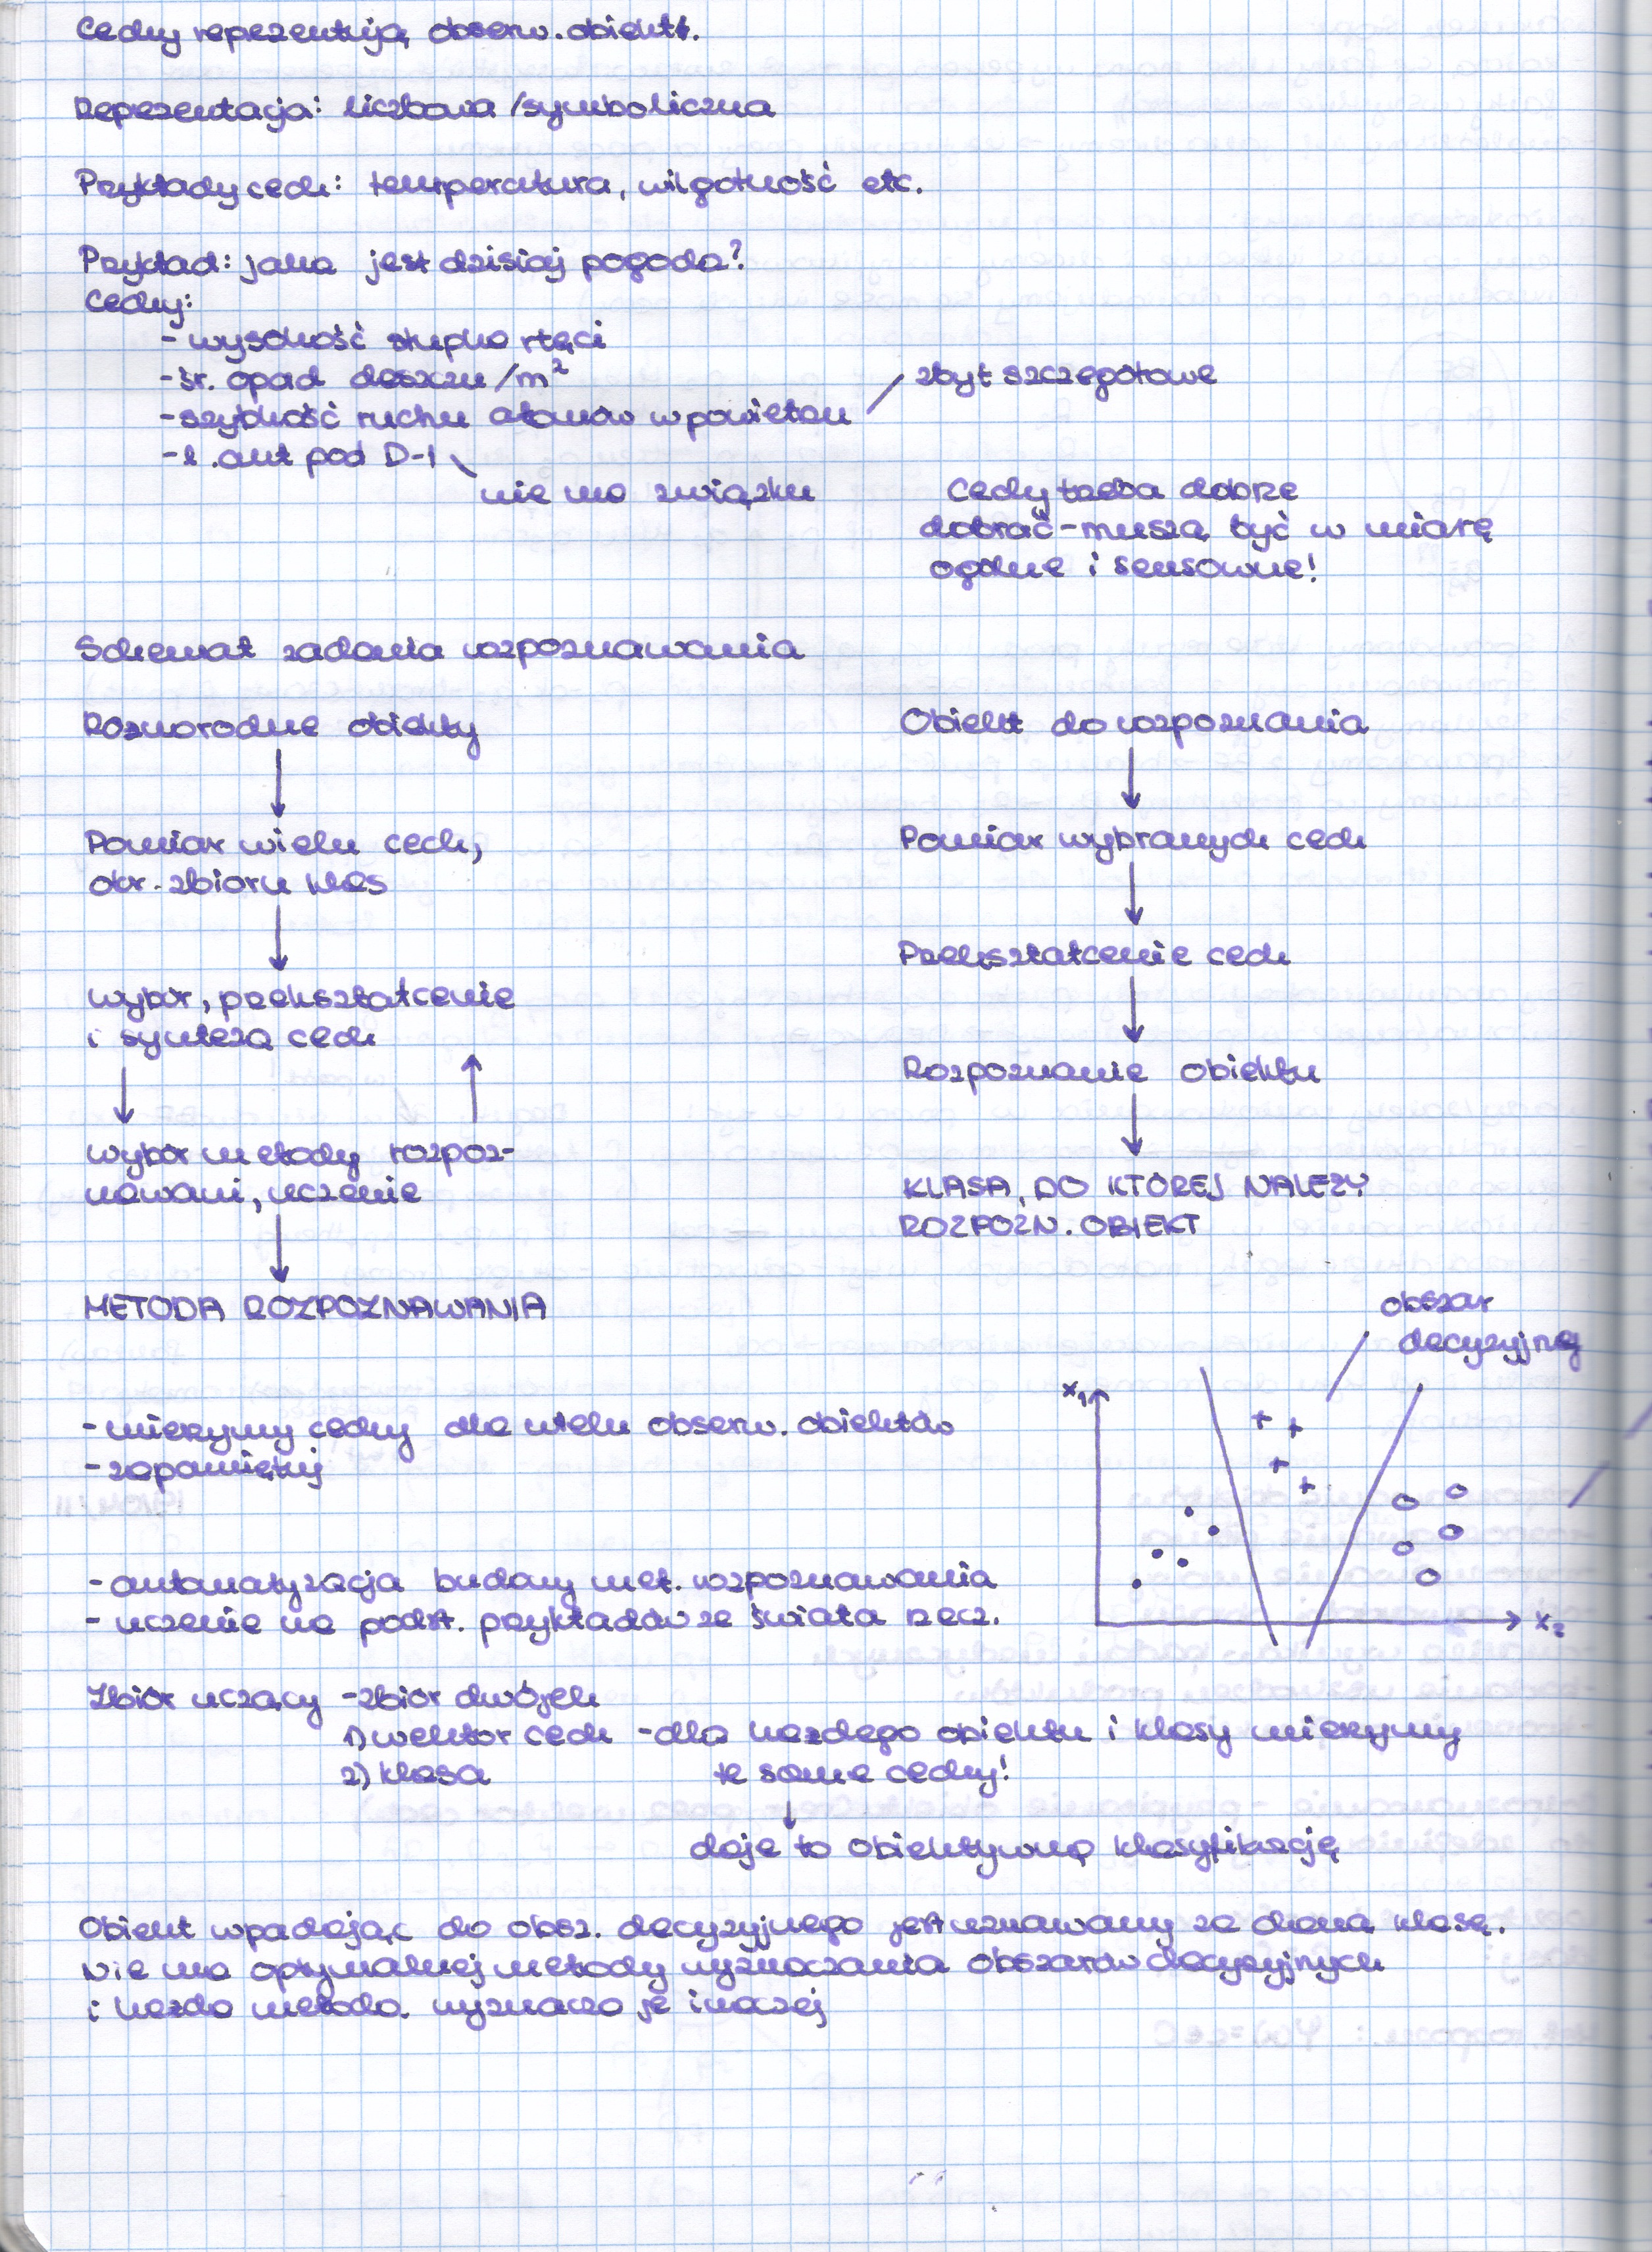 Cechy reprezentują obserw. obiekt.
Reprezentacja: liczbowa / symboliczna
Przykłady cech: temperatura, wilgotność etc.
Przykład: jaka jest dzisiaj pogoda?
Cechy:
- wysokość słupka rtęci
- śr. opad deszczu/m²
- szybkość ruchu atomów w powietrzu
zbyt szczegółowe
- l. aut pod D-1
nie ma związku
Cechy trzeba dobrze
dobrać - muszą być w miarę
ogólne i sensowne!
Schemat zadania rozpoznawania
Różnorodne obiekty
Pomiar wielu cech,
okr. zbioru klas
wybór, przekształcenie
i synteza cech
wybór metody rozpoz-
nawani, uczenie
METODA ROZPOZNAWANIA
Obiekt do rozpoznania
Pomiar wybranych cech
Przekształcenie cech
Rozpoznanie obiektu
KLASA, DO KTÓREJ NALEŻY
ROZPOZN. OBIEKT
obszar
decyzyjny
x₁
x₂
- mierzymy cechy dla wielu obserw. obiektów
- zapamiętuj
- automatyzacja budowy met. rozpoznawania
- uczenie na podst. przykładów ze świata rzecz.
Zbiór uczący - zbiór dwójek
1) wektor cech - dla każdego obiektu i klasy mierzymy
2) klasa te same cechy!
daje to obiektywną klasyfikację
Obiekt wpadając do obsz. decyzyjnego jest uznawany za daną klasę.
Nie ma optymalnej metody wyznaczania obszarów decyzyjnych
i każda metoda wyznacza je inaczej